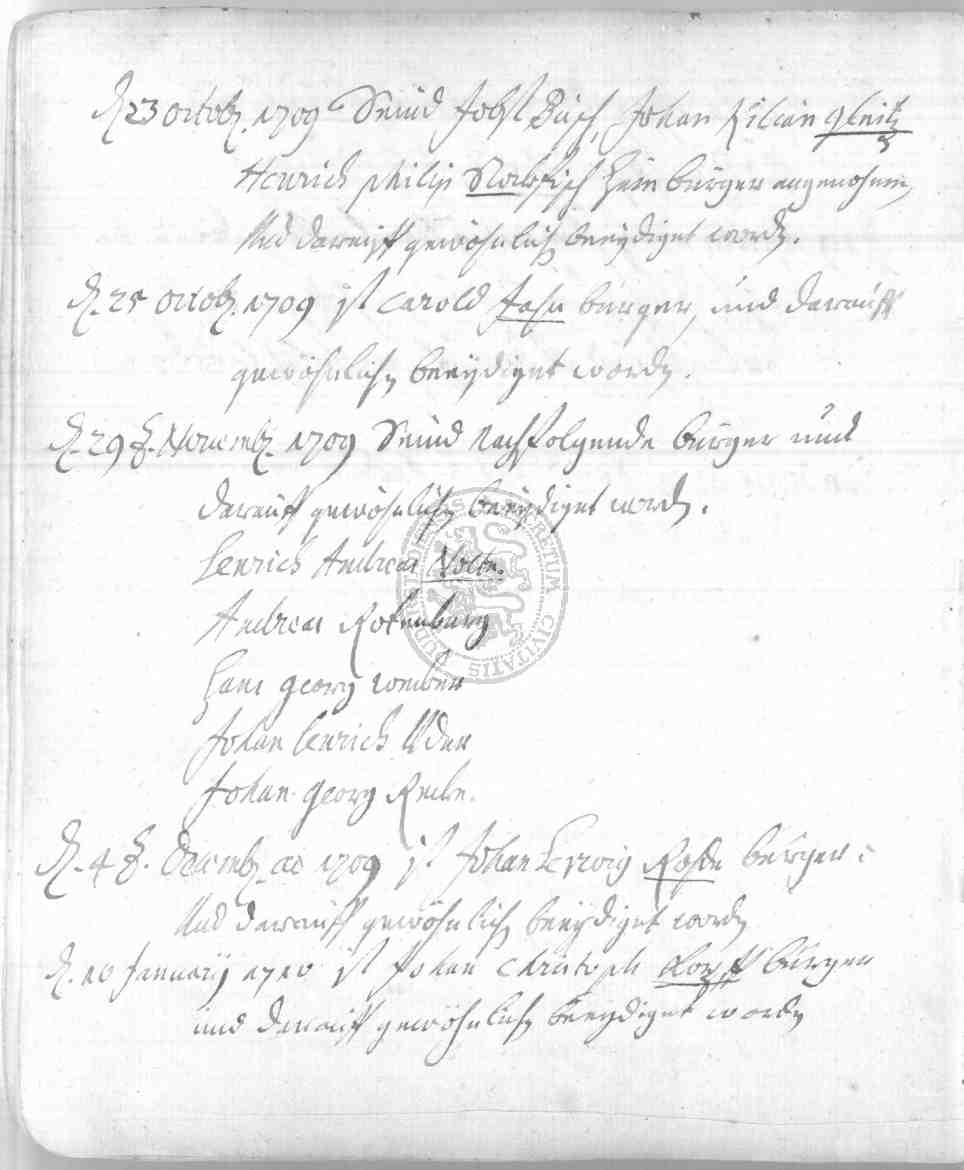 D. 23 octob. 1709 Seind Jobst Busch, Johan Kilian gleitz
Henrich philip zum bürger angenohmen,
Und darauff gewöhnlich beeydiget word.
D. 25 octob. 1709 ist Carold Jahn bürger, und darauff
gewöhnlich beeydiget worden.
D. 29 Novemb. 1709 Seind Nachfolgende bürger und
darauff gewöhnlich beeydiget word.
henrich Andreas Nolte.
Andreas Rotenburg
hans georg
Johan henrich Uder
Johan georg
D. 4 Decemb. ao 1709 ist Johan Rohde bürger
Und darauff gewöhnlich beeydiget word
D. 10 January 1710 ist Johan Christoph bürger
und darauff gewöhnlich beeydiget worden
SECRETUM CIVITATIS